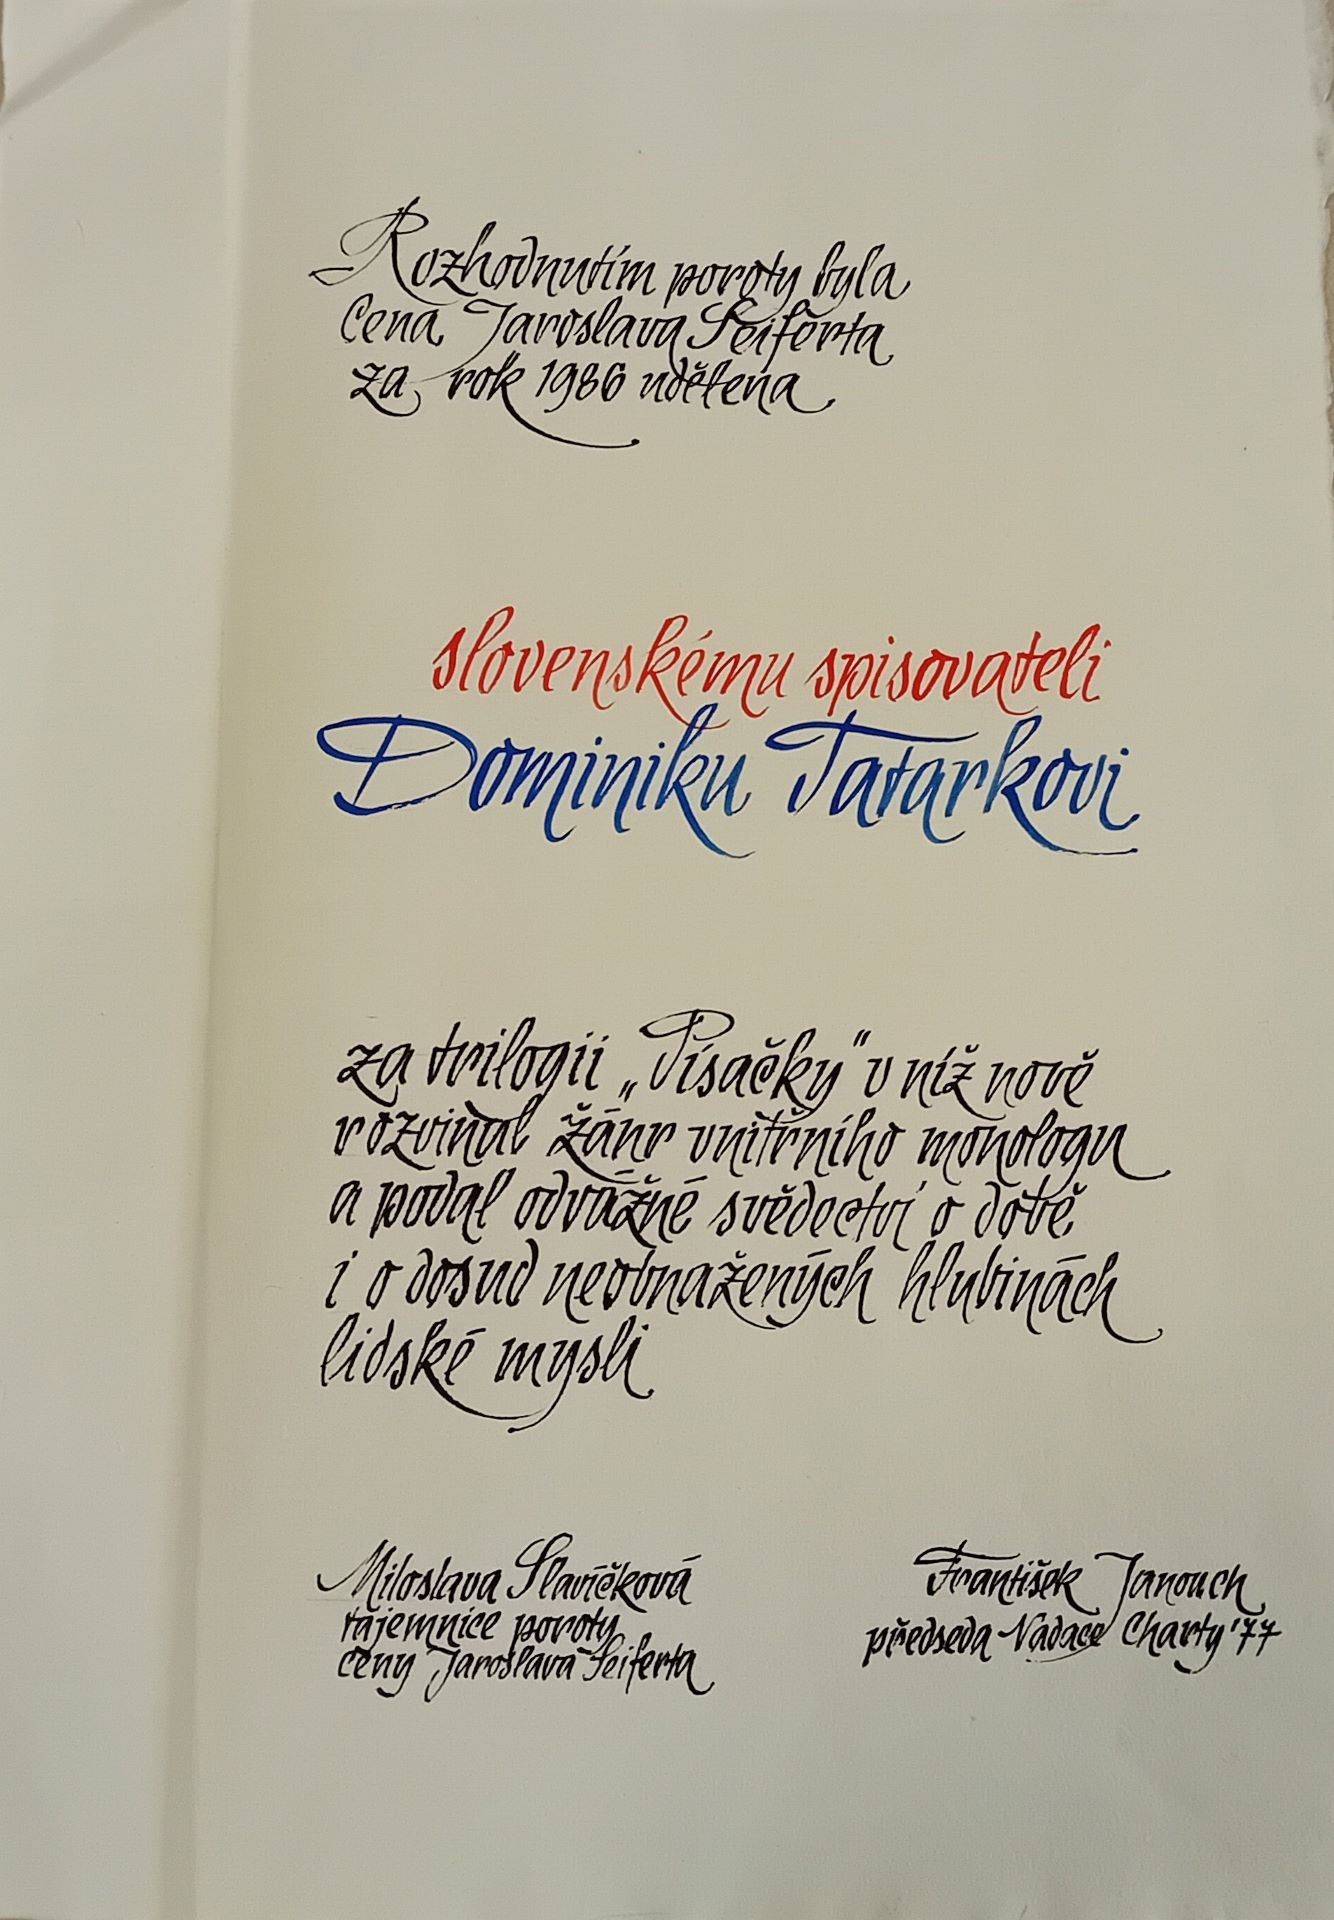 Rozhodnutím poroty byla
Cena Jaroslava Seiferta
za rok 1986 udělena
slovenskému spisovateli
Dominiku Tatarkovi
za trilogii „Písačky" v níž nově
rozvinul žánr vnitřního monologu
a podal odvážné svědectví o době
i o dosud neobnažených hlubinách
lidské mysli
Miloslava Slavíčková
tajemnice poroty
ceny Jaroslava Seiferta
František Janouch
předseda Nadace Charty '77